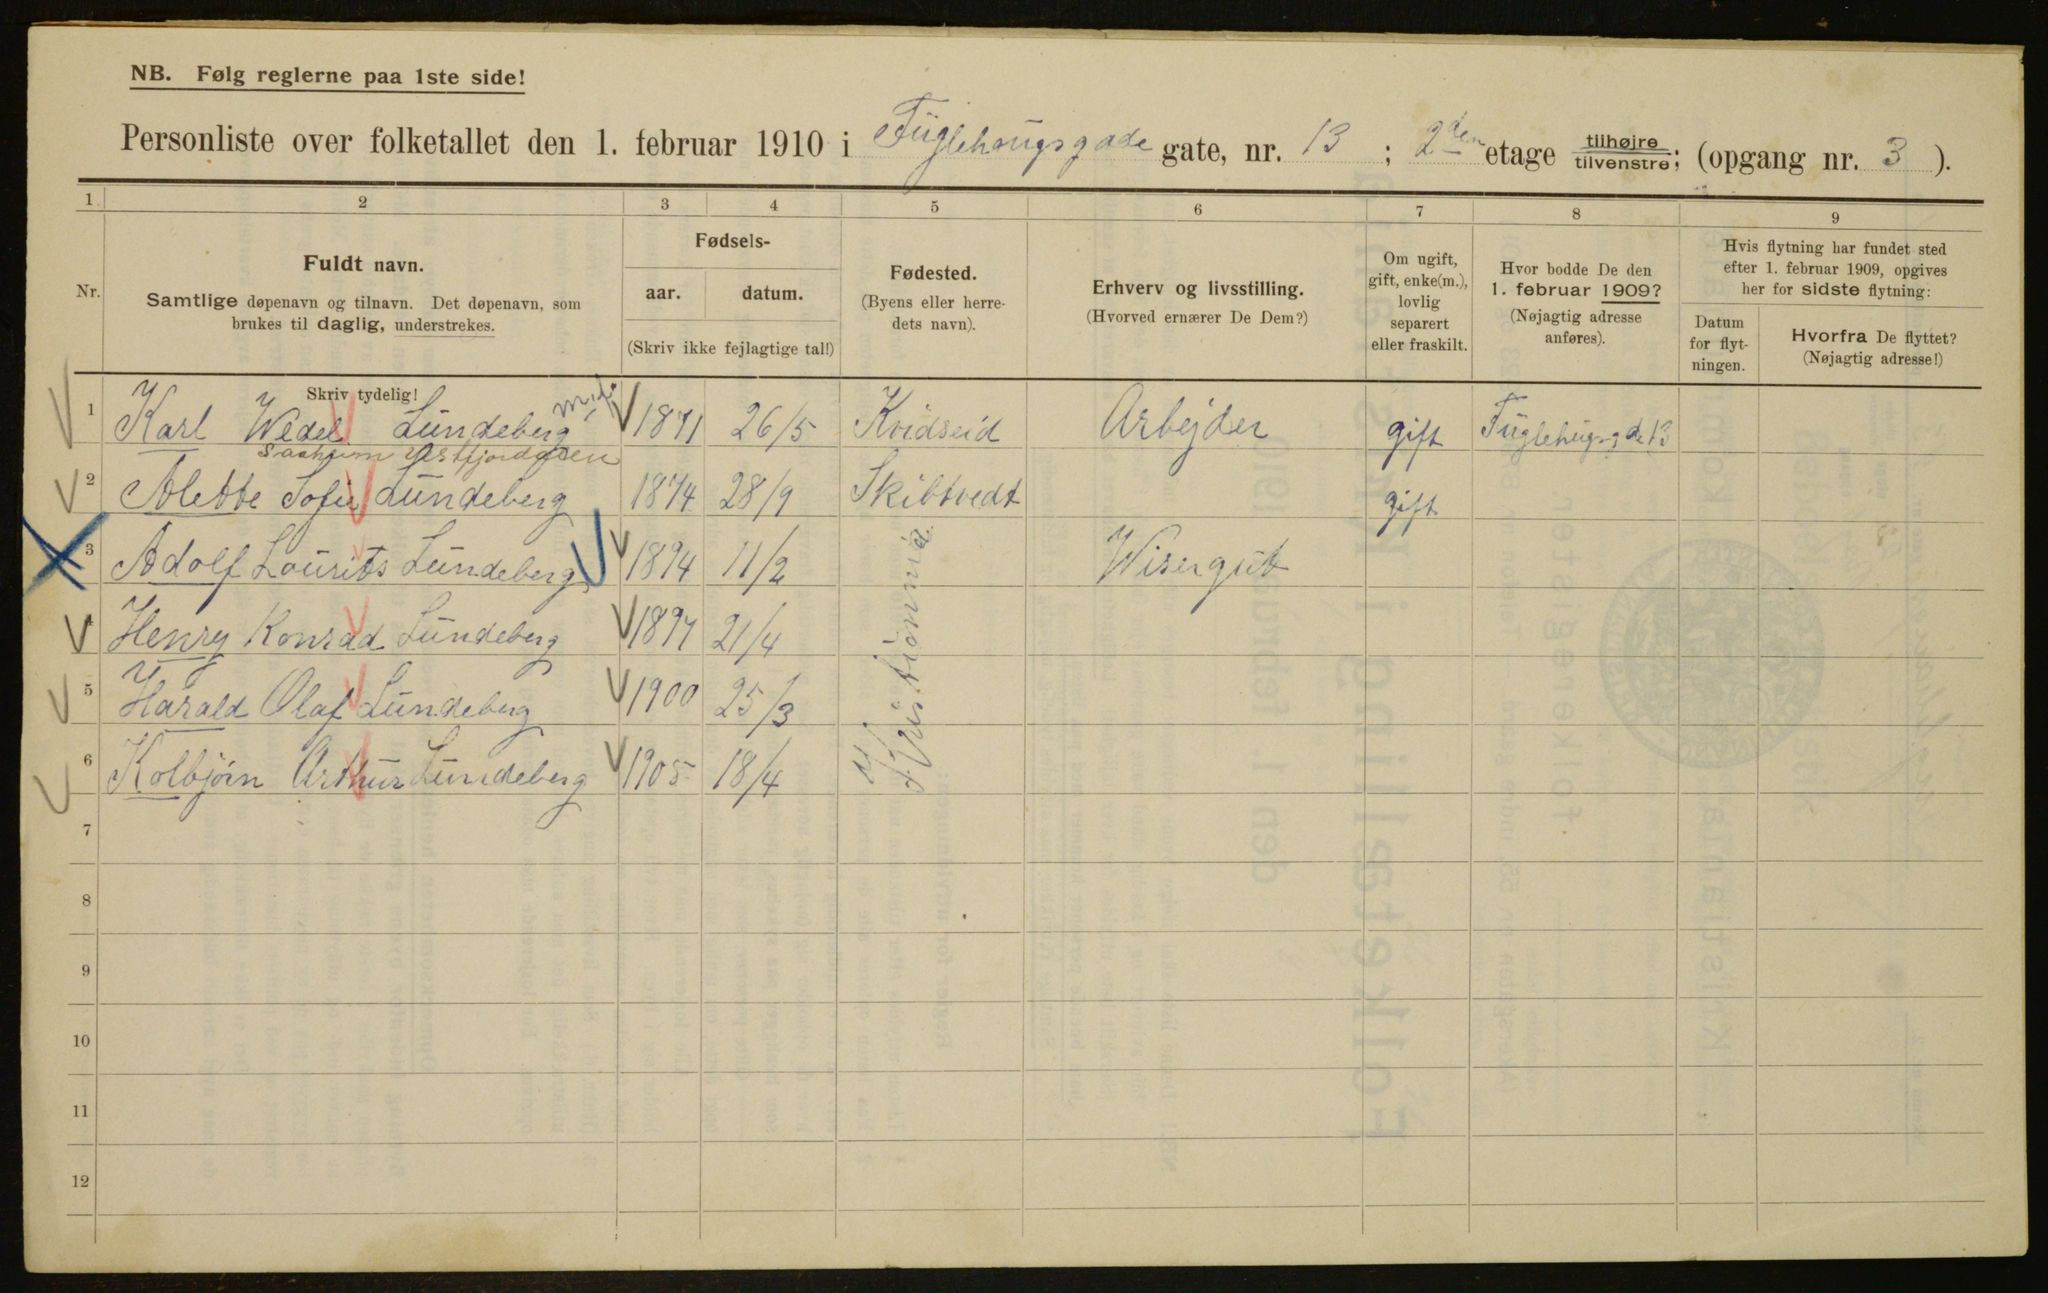 NB. Følg reglerne paa 1ste side!
Personliste over folketallet den 1. februar 1910 i Fuglehaugsgade gate, nr. 13 ; 2den etage tilhøjre tilvenstre; (opgang nr. 3 ).
1 2 3 4 5 6 7 8 9
Nr.
Fuldt navn.
Samtlige døpenavn og tilnavn. Det døpenavn, som
brukes til daglig, understrekes.
Fødsels-
aar. datum.
(Skriv ikke fejlagtige tal!)
Fødested.
(Byens eller herre-
dets navn).
Erhverv og livsstilling.
(Hvorved ernærer De Dem?)
Om ugift,
gift, enke(m.),
lovlig
separert
eller fraskilt.
Hvor bodde De den
1. februar 1909?
(Nøjagtig adresse
anføres).
Hvis flytning har fundet sted
efter 1. februar 1909, opgives
her for sidste flytning:
Datum
for flyt-
ningen.
Hvorfra De flyttet?
(Nøjagtig adresse!)
Skriv tydelig!
1 Karl Wedel Lundeberg midl. 1871 26/5 Kvidseid Arbejder gift Fuglehugsgde 13
Saaheim Vestfjorddalen
2 Alette Sofie Lundeberg 1874 28/9 Skibtvedt gift
3 Adolf Lourits Lundeberg 1894 11/2 Kristiania Wisergut
4 Henry Konrad Lundeberg 1897 21/4
5 Harald Olaf Lundeberg 1900 25/3
6 Kolbjørn Arthur Lundeberg 1905 18/4
7
8
9
10
11
12